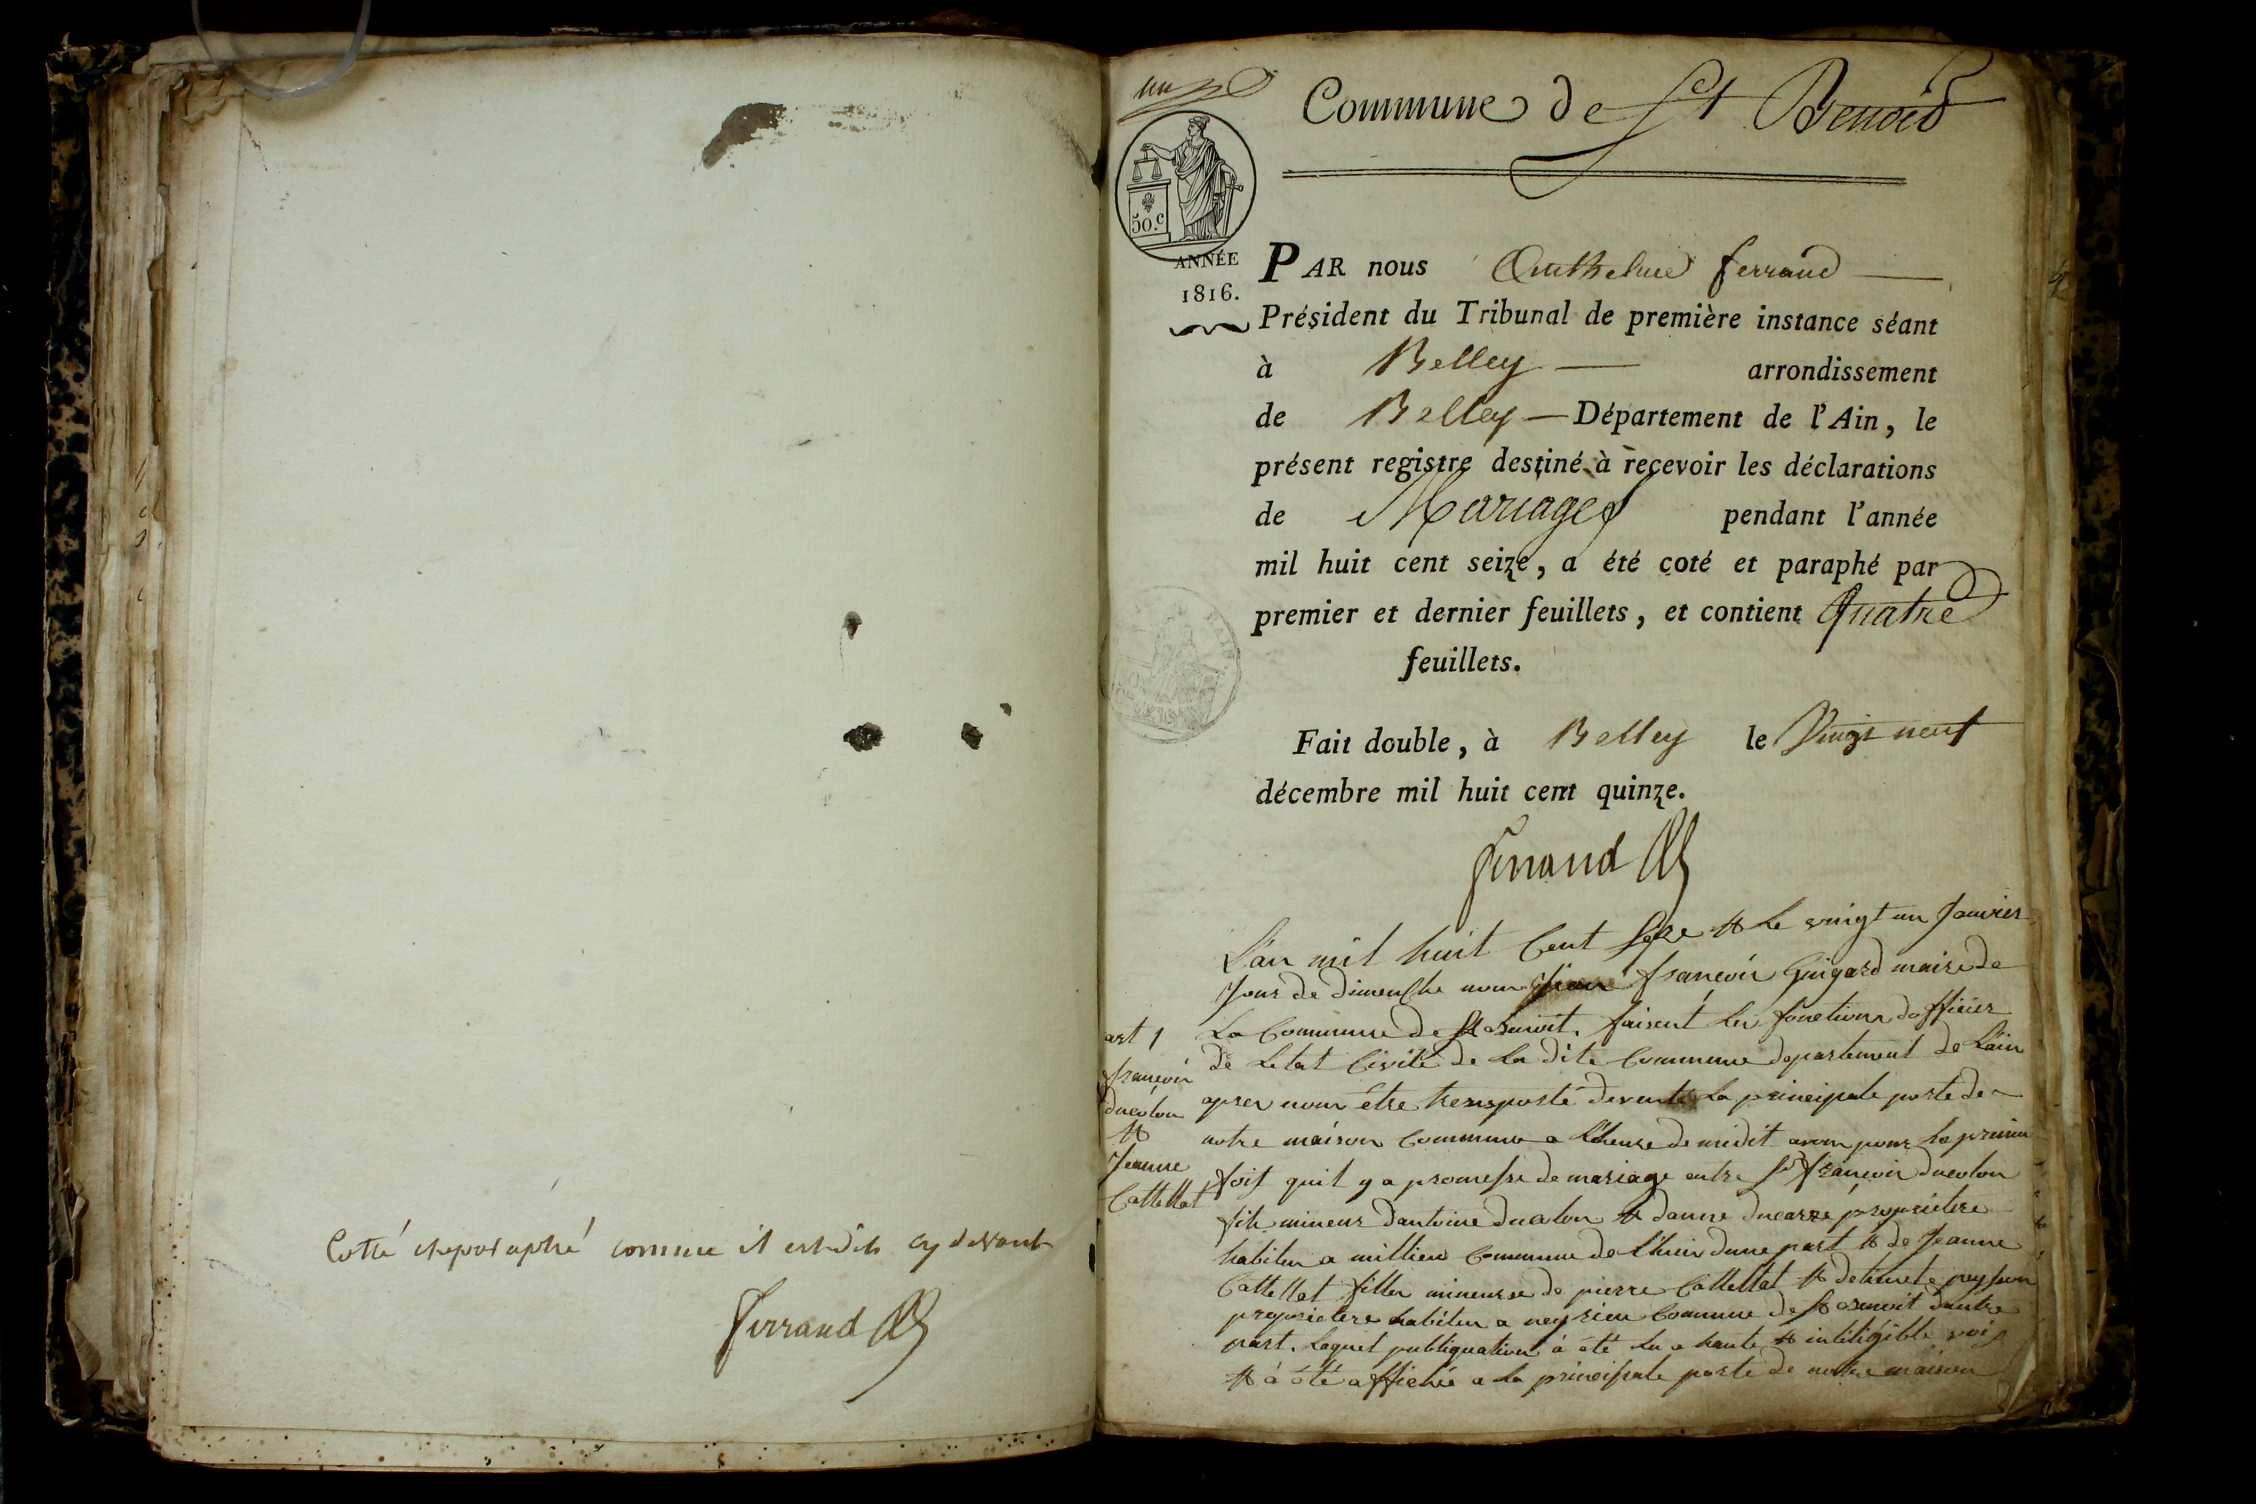 Cotté et paraphé comme il est dit cy devant
Ferrand
un
Commune de St Benoit
50.c
ANNÉE
1816.
PAR nous Anthelme ferrand
Président du Tribunal de première instance séant
à Belley arrondissement
de Belley Département de l'Ain, le
présent registre destiné à recevoir les déclarations
de Mariages pendant l'année
mil huit cent seize, a été coté et paraphé par
premier et dernier feuillets, et contient quatre
feuillets.
Fait double, à Belley le Vingt neuf
décembre mil huit cent quinze.
Ferrand
L'an mil huit Cent Seze & Le vingt un Janvier
Jour de dimenche nous Jean françois Guigard maire de
La Commune de St Benoit. faisent les fonctions dofficier
de Letat Civile de La dite Commune departement de Lain
apres nous être transporté devente La principale porte de
notre maison Commune a l'heure de midit avons pour la premier
fois quil y a promesse de mariage entre Sr françois ducolon
fils mineur dantoine ducolon & danne ducarre proprietere
habiten a millieu Commune de Lhuis dune part & de Jeanne
Cattellat filles mineurse de pierre Cattellat &
proprietere habiten a neyrieu Commune de St Benoit dautre
part. Laquel publiquation à été lu a haute & intéligible voix
& à été affichée a la principale porte de notre maison
art 1
françois
ducolon
&
Jeanne
Cattellat